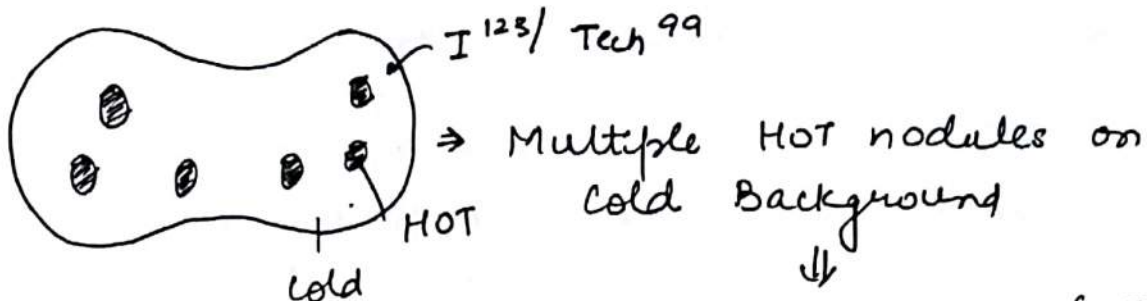 I¹²³/ Tech⁹⁹
⇒ Multiple HOT nodules on
cold Background
HOT
cold
⇓